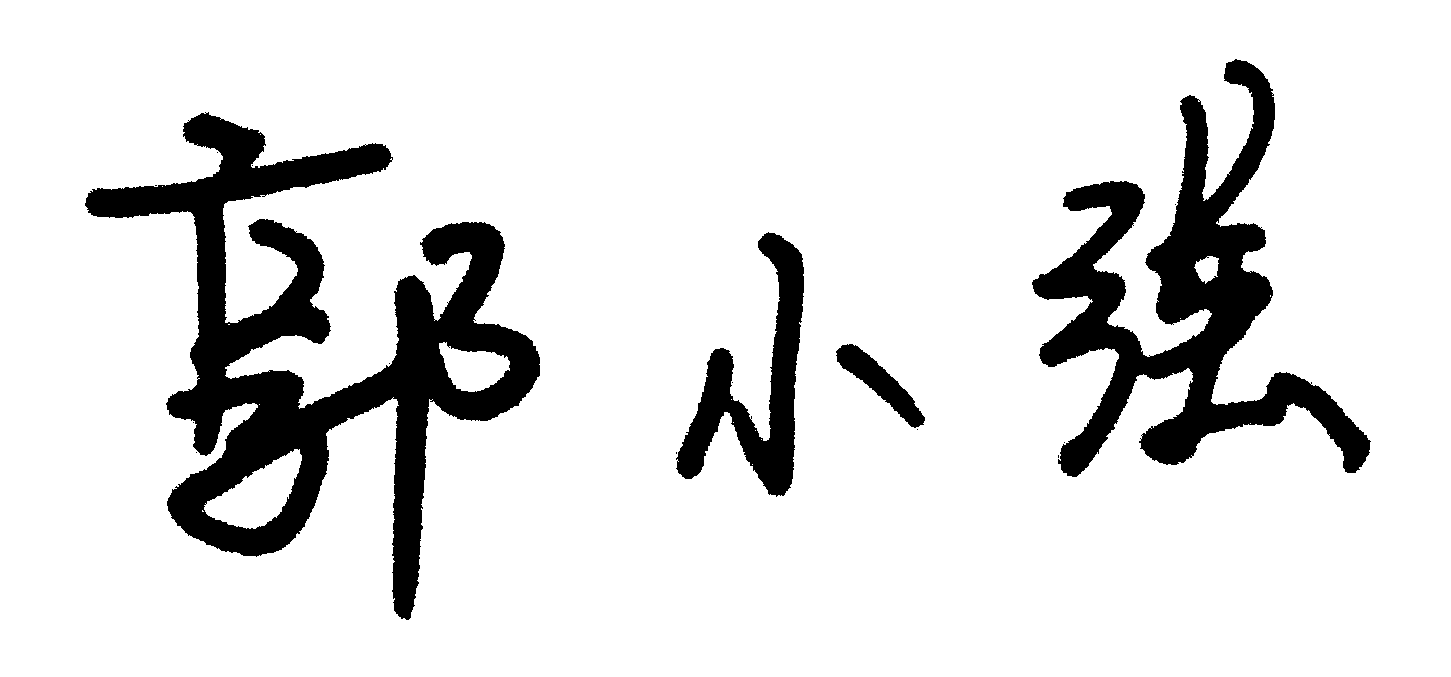 郭小强